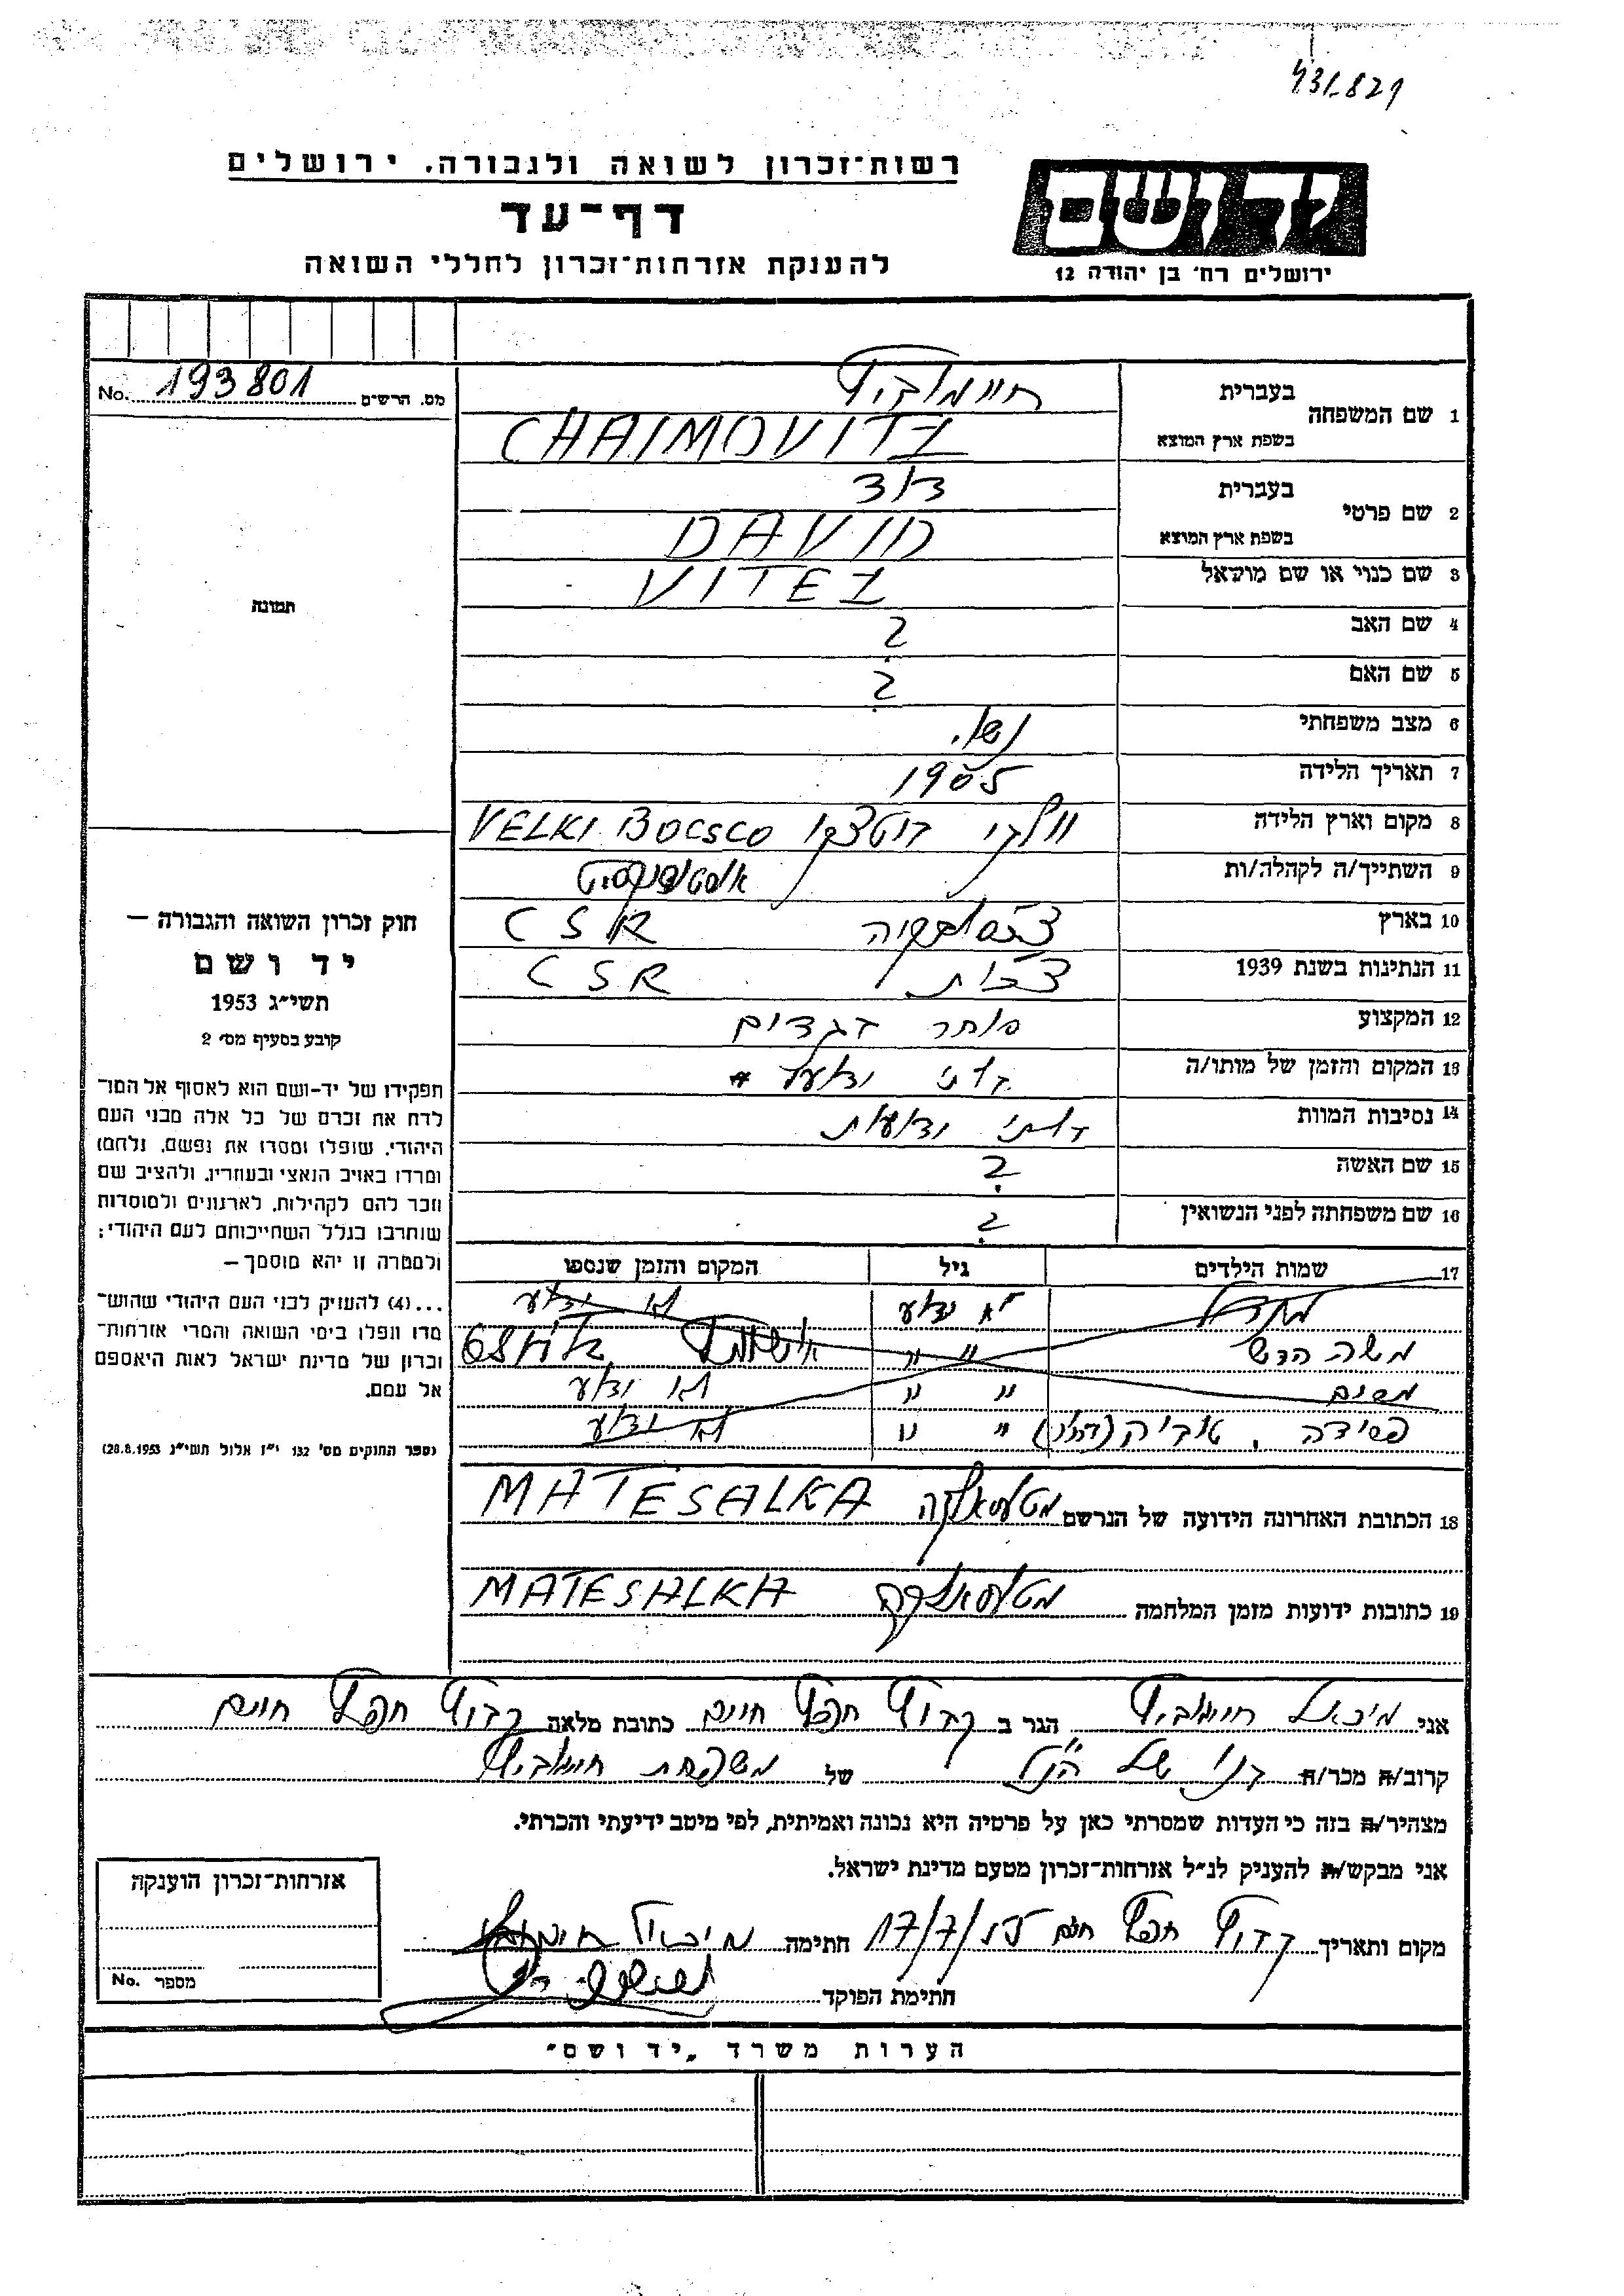 431.821
רשות־זכרון לשואה ולגבורה, ירושלים
דף־עד
להענקת אזרחות־זכרון לחללי השואה
יד ושם
ירושלים רח' בן יהודה 12
No. 193801 מס. הרשים
1 שם המשפחה בעברית חיימוביץ
בשפת ארץ המוצא CHAIMOVITZ
2 שם פרטי בעברית דוד
בשפת ארץ המוצא DAVID
3 שם כנוי או שם מושאל VITEZ
4 שם האב ?
5 שם האם ?
6 מצב משפחתי נשוי
7 תאריך הלידה 1905
8 מקום וארץ הלידה VELKI BOCSCO
9 השתייך/ה לקהלה/ות
10 בארץ CSR
11 הנתינות בשנת 1939 CSR
12 המקצוע סוחר
13 המקום והזמן של מותו/ה
14 נסיבות המוות
15 שם האשה ?
16 שם משפחתה לפני הנשואין ?
17 שמות הילדים גיל המקום והזמן שנספו
לא ידוע לא ידוע
משה הרש " "
" " לא ידוע
" " לא ידוע
18 הכתובת האחרונה הידועה של הנרשם MATESALKA
19 כתובות ידועות מזמן המלחמה MATESALKA
תמונה
חוק זכרון השואה והגבורה —
יד ושם
תשי״ג 1953
קובע בסעיף מס' 2
תפקידו של יד־ושם הוא לאסוף אל המו־
לדת את זכרם של כל אלה מבני העם
היהודי, שנפלו ומסרו את נפשם, נלחמו
ומרדו באויב הנאצי ובעוזריו, ולהציב שם
וזכר להם לקהילות, לארגונים ולמוסדות
שנחרבו בגלל השתייכותם לעם היהודי;
ולמטרה זו יהא מוסמך —
...(4) להעניק לבני העם היהודי שהוש־
מדו ונפלו בימי השואה והמרי אזרחות־
זכרון של מדינת ישראל לאות היאספם
אל עמם.
(ספר החוקים מס' 132 י״ז אלול תשי״ג 28.8.1953)
אני מיכאל חיימוביץ הגר ב קבוץ חפץ חיים כתובת מלאה קבוץ חפץ חיים
קרוב/ה מכר/ה בנו של הנ״ל של משפחת חיימוביץ
מצהיר/ה בזה כי העדות שמסרתי כאן על פרטיה היא נכונה ואמיתית, לפי מיטב ידיעתי והכרתי.
אני מבקש/ת להעניק לנ״ל אזרחות־זכרון מטעם מדינת ישראל.
מקום ותאריך קבוץ חפץ חיים 17/7/55 חתימה מיכאל חיימוביץ
חתימת הפוקד
אזרחות־זכרון הוענקה
No. מספר
הערות משרד „יד ושם״